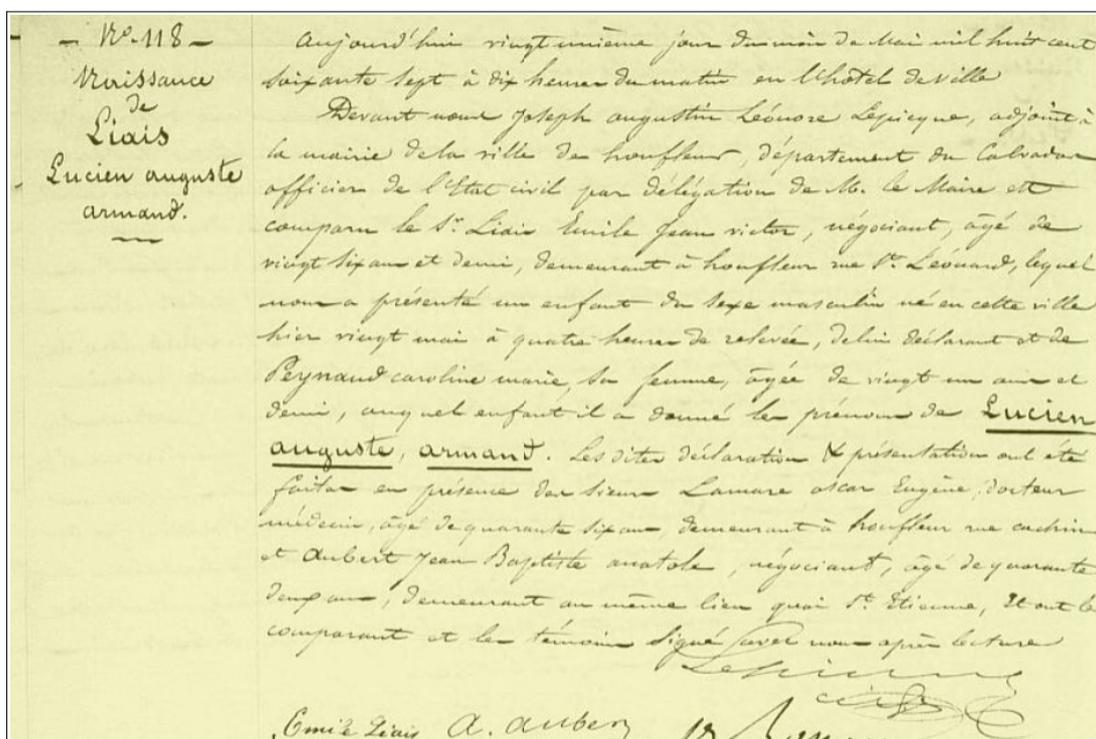 — N° 118 —
Naissance
de
Liais
Lucien auguste
armand.
Aujourd'hui vingt unième jour du mois de Mai mil huit cent
soixante sept à dix heures du matin en l'hôtel de ville
Devant nous Joseph augustin Léonore Lepicque, adjoint à
la mairie de la ville de honfleur, département du Calvados
officier de l'Etat civil par délégation de M. le Maire est
comparu le Sr. Liais Emile Jean victor, négociant, âgé de
vingt six ans et demi, demeurant à honfleur rue St. Léonard, lequel
nous a présenté un enfant du sexe masculin né en cette ville
hier vingt mai à quatre heures de relevée, de lui déclarant et de
Peynaud caroline marie, sa femme, âgée de vingt un ans et
demi, auquel enfant il a donné les prénoms de Lucien
auguste, armand. Les dites déclaration & présentation ont été
faites en présence des sieurs Lamare oscar Eugène, docteur
médecin, âgé de quarante six ans, demeurant à honfleur rue cachin
et Aubert Jean Baptiste anatole, négociant, âgé de quarante
deux ans, demeurant au même lieu quai St. Etienne, Et ont le
comparant et les témoins signé avec nous après lecture
Emile Liais A. Aubert